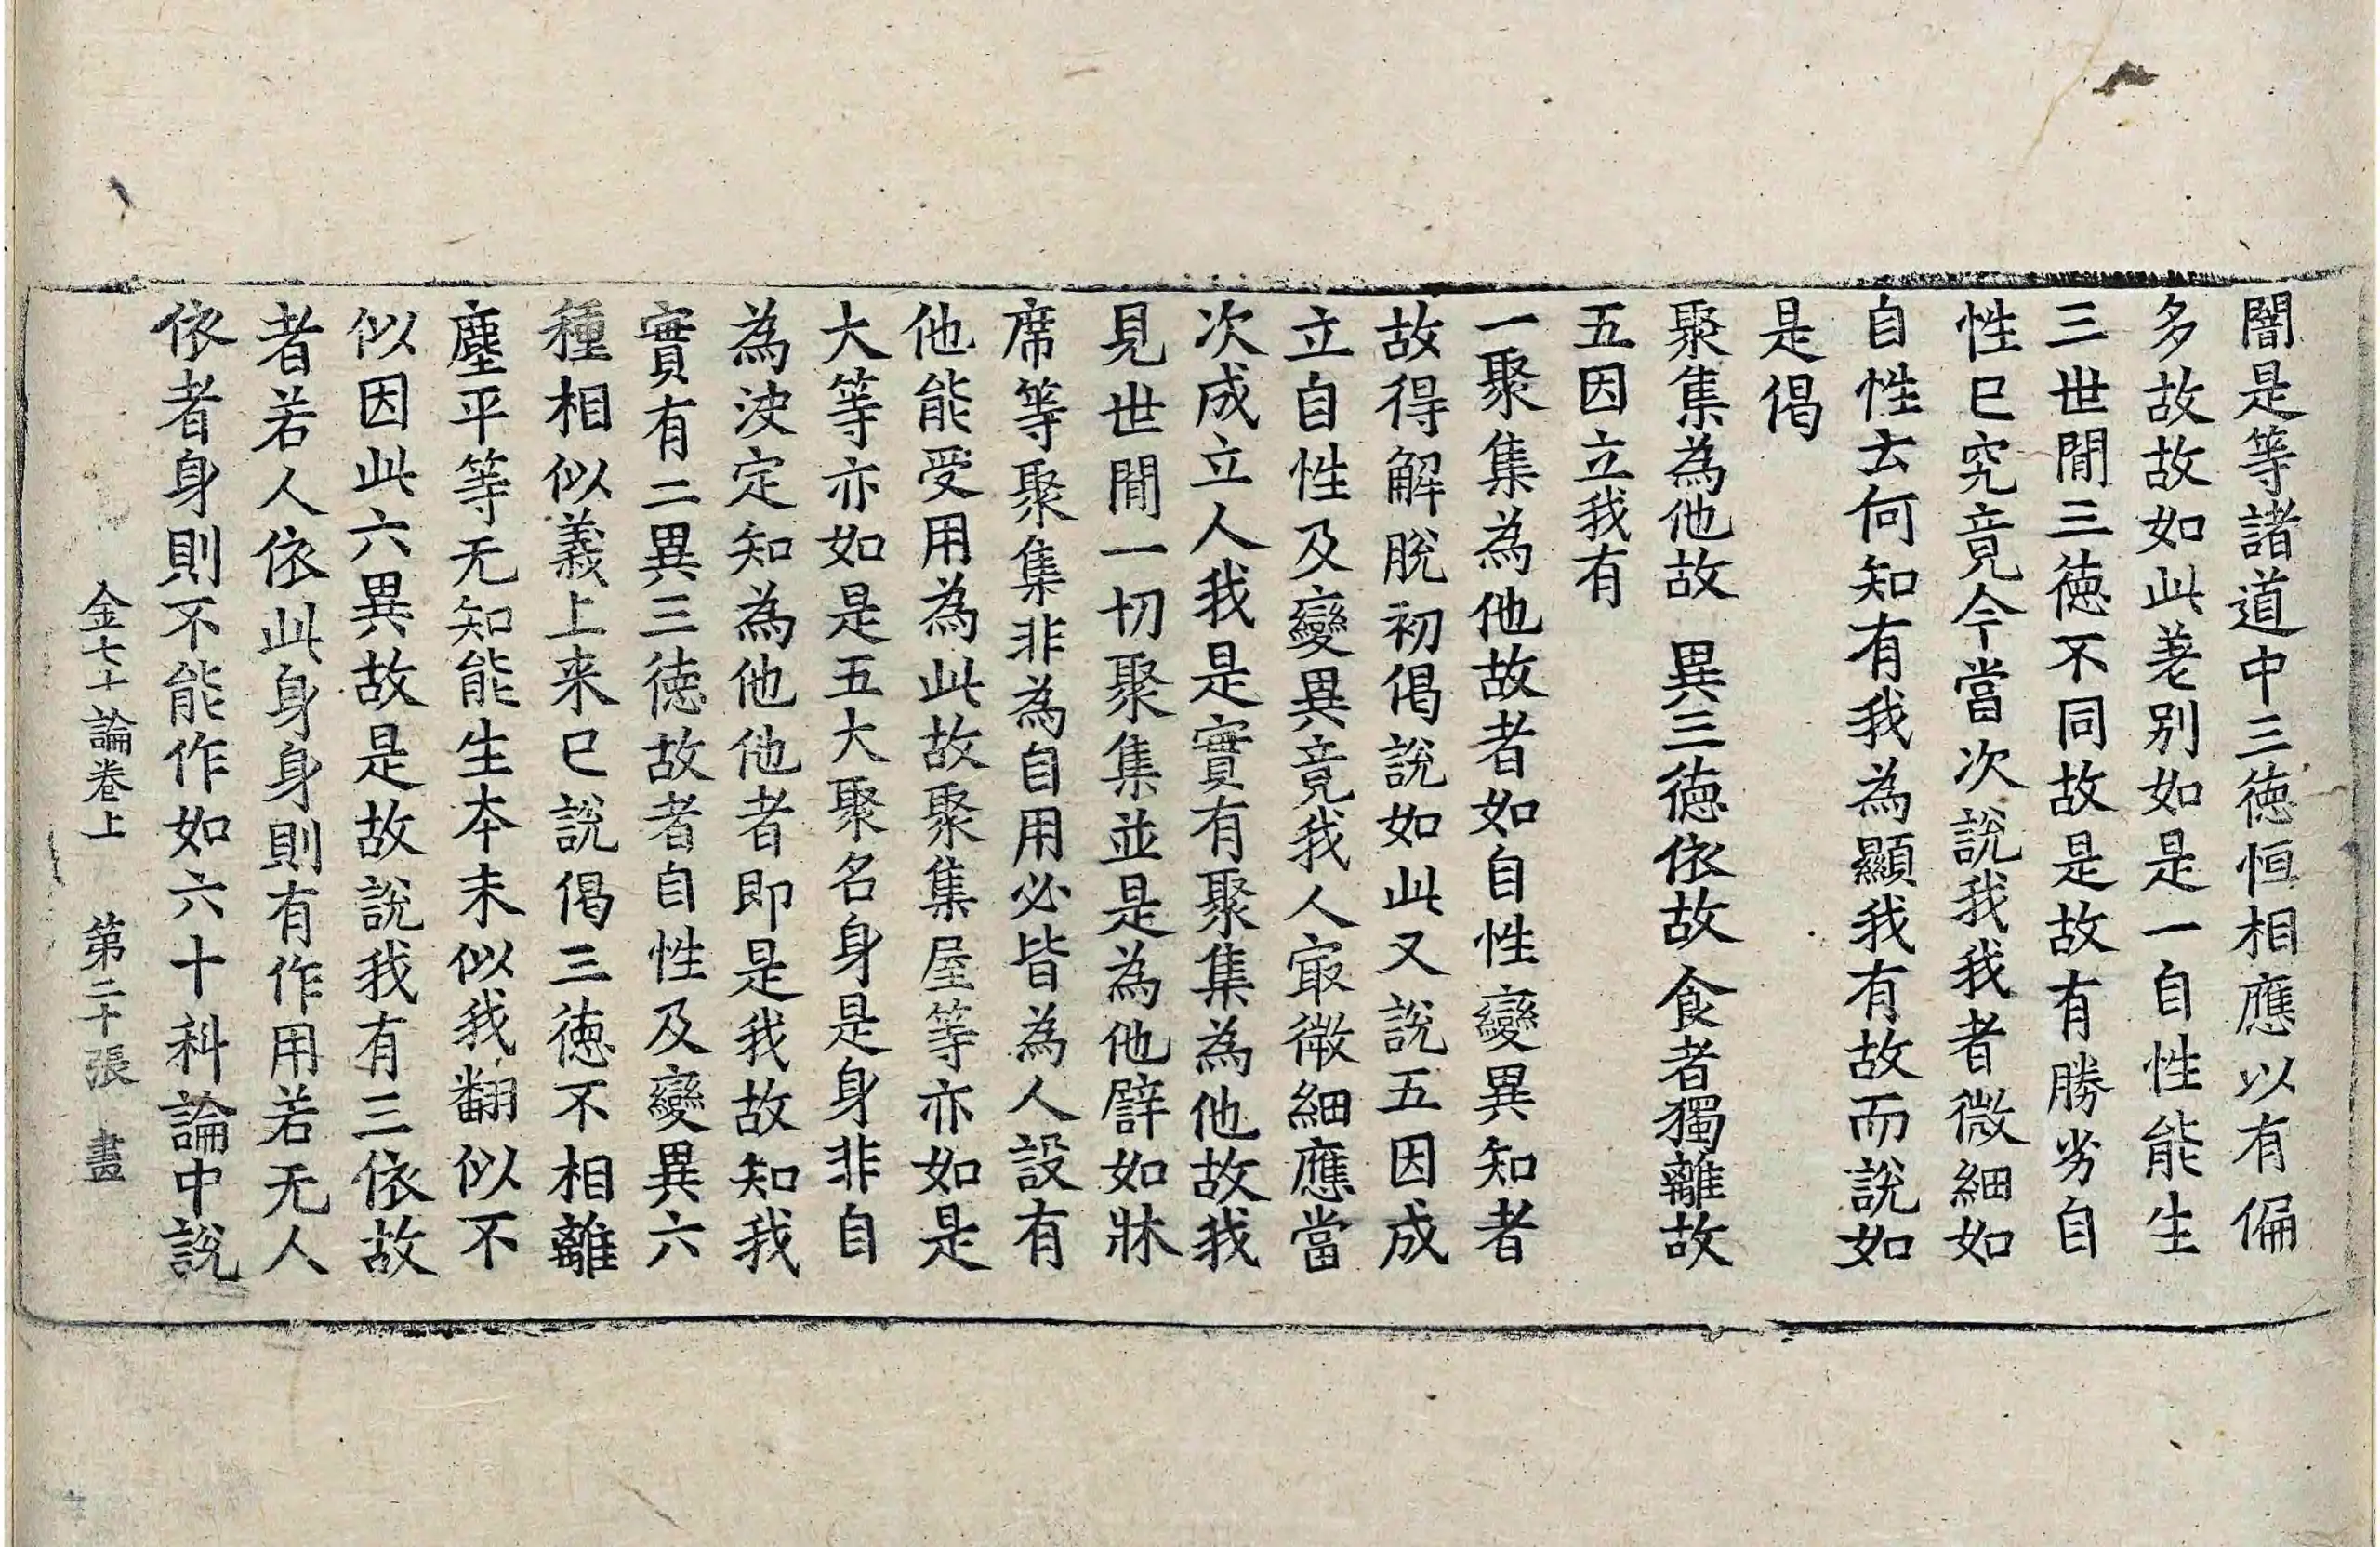 闇是等諸道中三徳恒相應以有偏
多故故如此差别如是一自性能生
三世間三徳不同故是故有勝劣自
性已究竟今當次說我我者微細如
自性去何知有我為顯我有故而說如
是偈
聚集為他故　異三徳依故　食者獨離故
五因立我有
一聚集為他故者如自性變異知者
故得解脫初偈說如此又說五因成
立自性及變異竟我人㝡微細應當
次成立人我是實有聚集為他故我
見世間一切聚集並是為他譬如牀
席等聚集非為自用必皆為人設有
他能受用為此故聚集屋等亦如是
大等亦如是五大聚名身是身非自
為决定知為他他者即是我故知我
實有二異三徳故者自性及變異六
種相似義上来已說偈三徳不相離
塵平等无知能生本末似我翻似不
似因此六異故是故說我有三依故
者若人依此身身則有作用若无人
依者身則不能作如六十科論中說
金七十論卷上　第二十張　𦘕